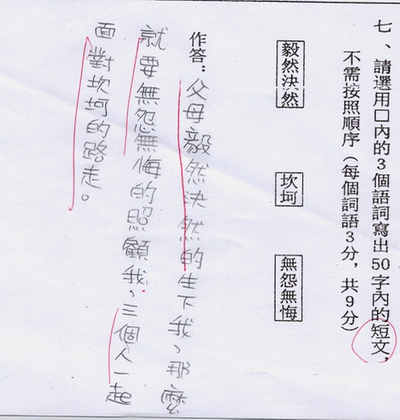 七、請選用□內的3個語詞寫出50字內的短文，
不需按照順序（每個詞語3分，共9分）
毅然決然
坎坷
無怨無悔
作答：父母毅然決然的生下我，那麼
就要無怨無悔的照顧我，三個人一起
面對坎坷的路走。